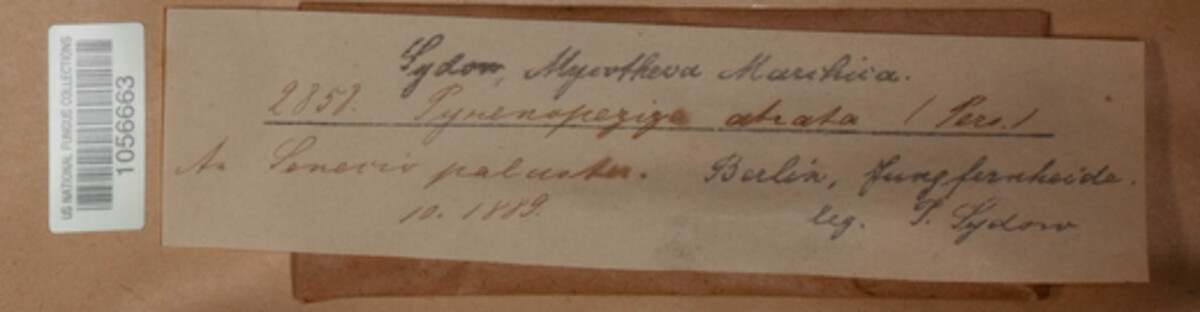 US NATIONAL FUNGUS COLLECTIONS
1056663
Sydow, Mycotheca Marchica.
2851. Pyrenopeziza atrata (Pers.)
An Senecio paluster. Berlin, Jungfernheide.
10. 1889. leg. P. Sydow